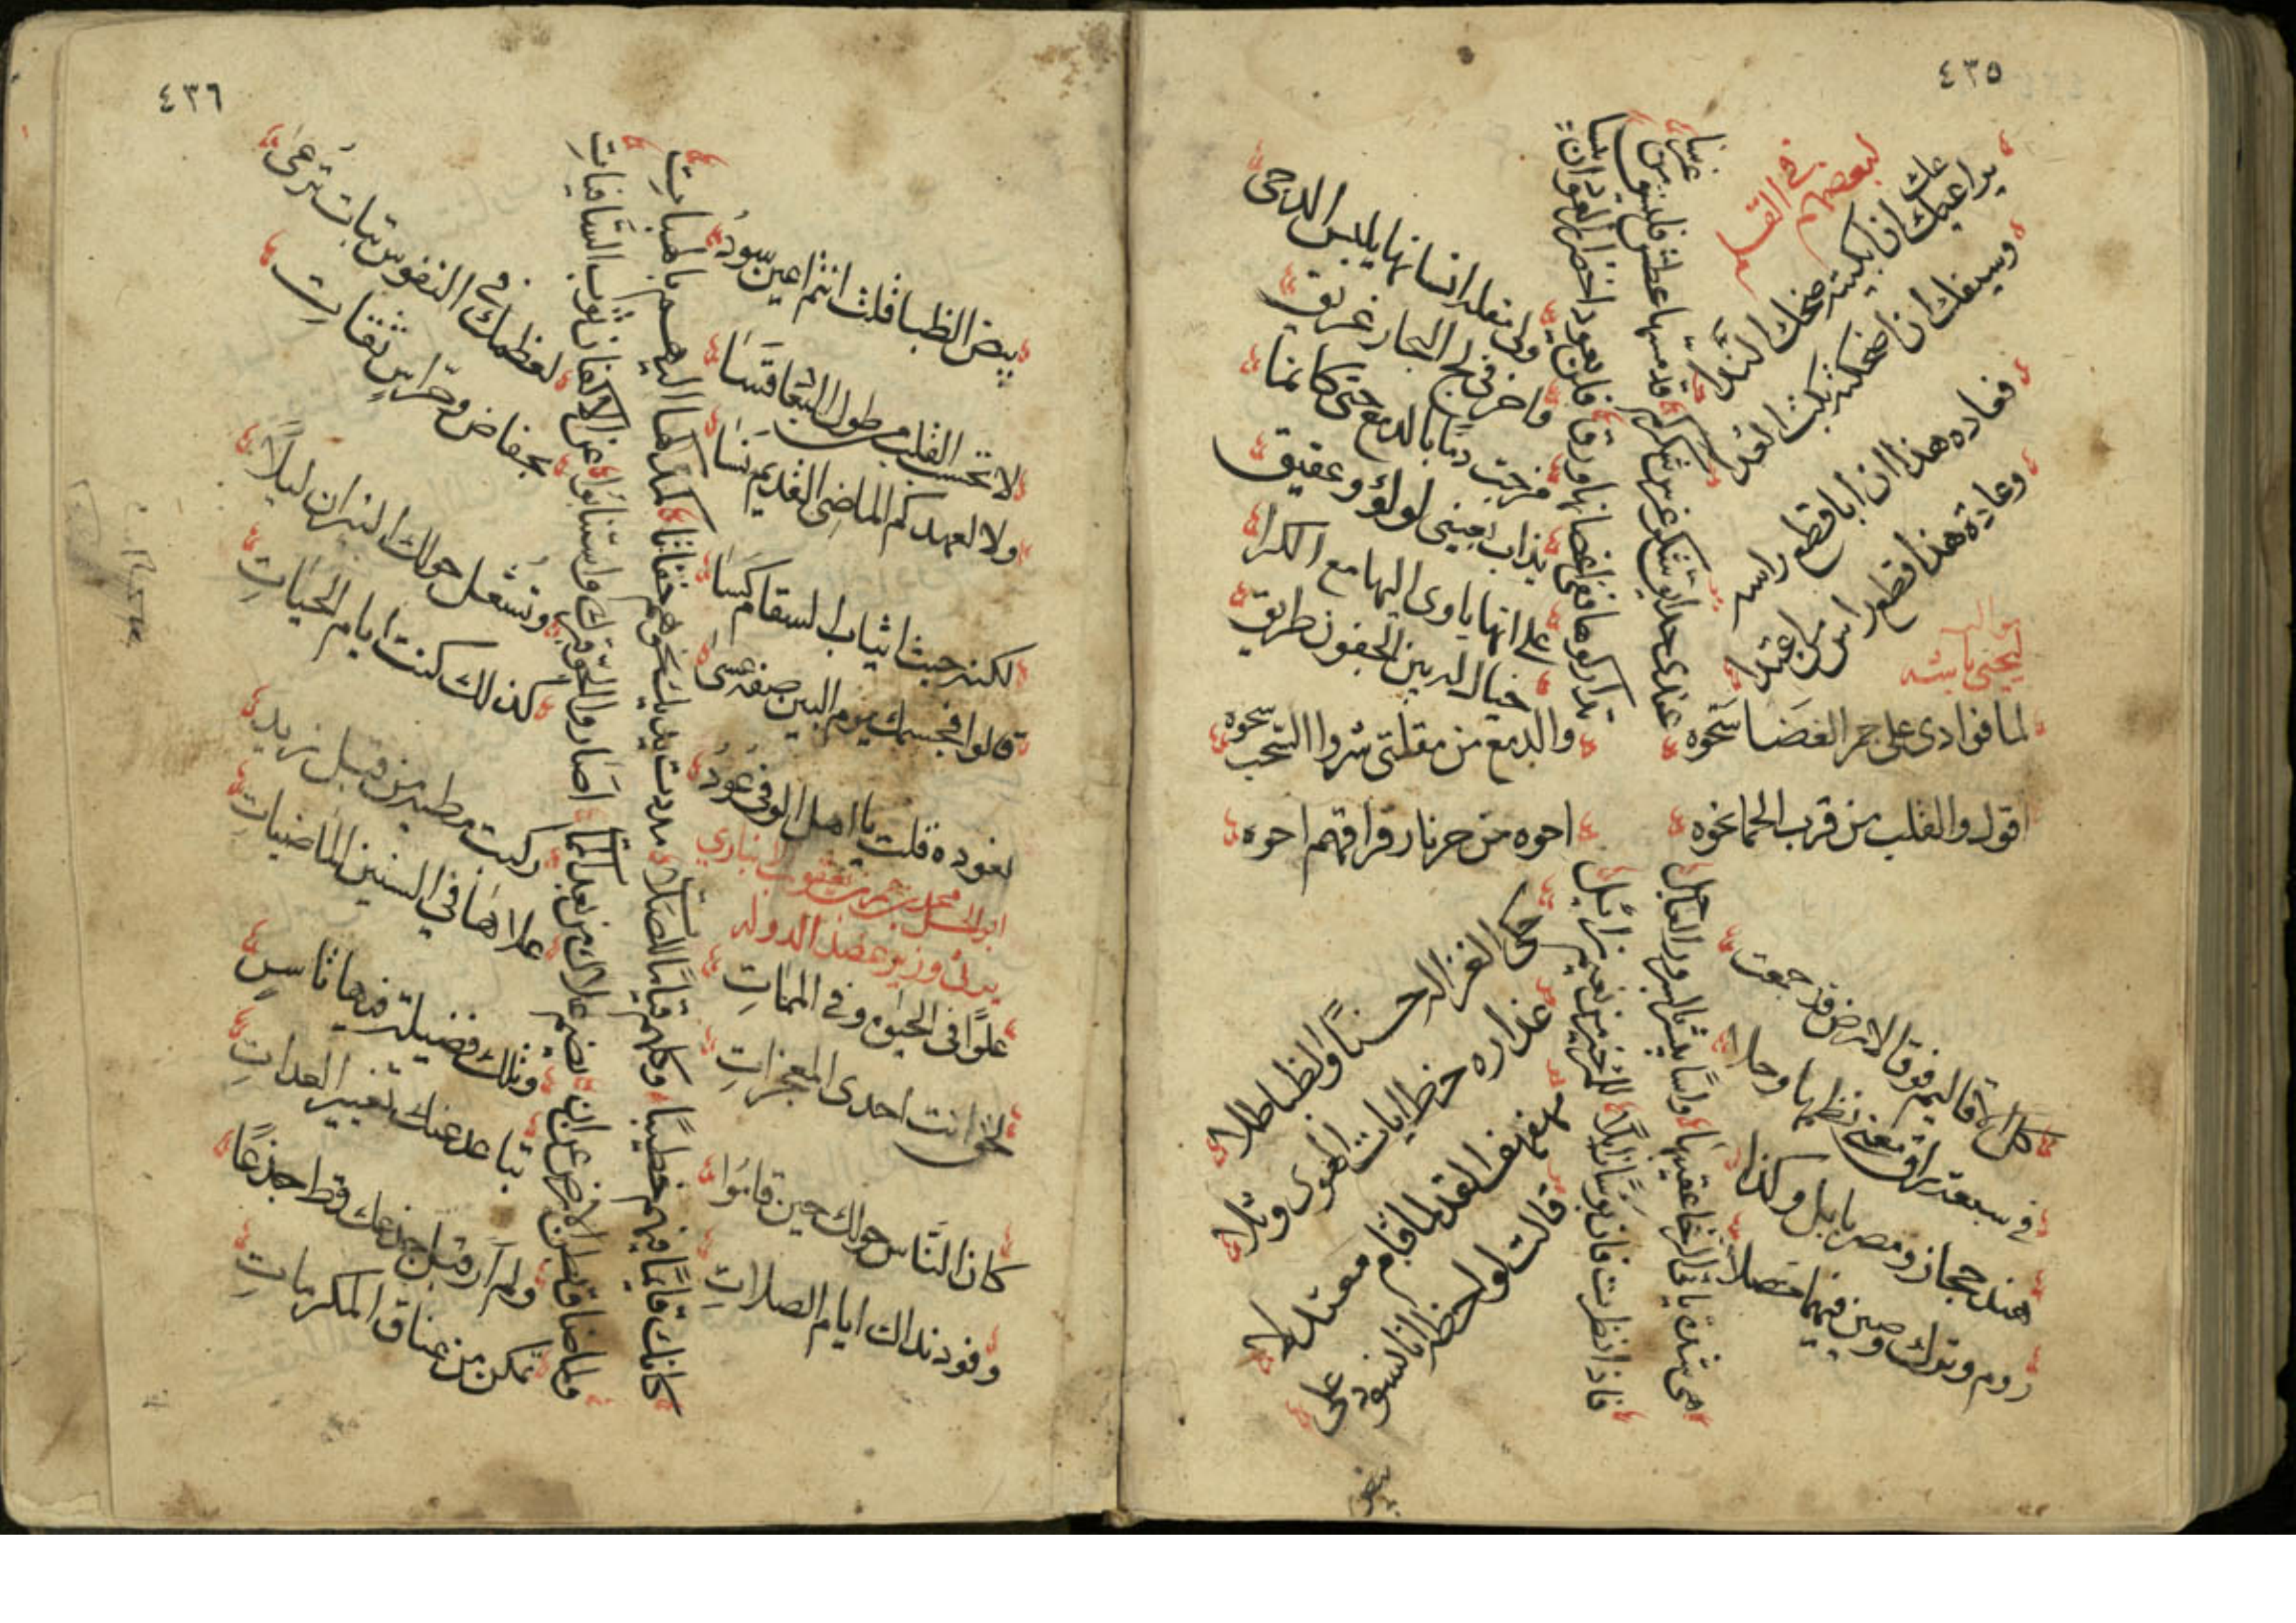 ٤٣٥
لبعضهم
في القلم
يراعيك ان ابكيته ضحك الندا
وسيفك ان اضحكته بكت العدا
فعاده هذا ان ابا قطع راسه
وعادة هذا قطع راس من اعتدا
عندى حدايق شكر غرس شكركم
قد مسها عطش فليسق من غرسا
تداركوها ففى اغصانها ورق
فلن يعود اخضرار العود ان يبسا
ولى مقله انسانها يلبس الدجى
واخر فى لج البحار غريق
مزجت دما بالدمع حتى كانما
يذاب بعينى لولؤ وعقيق
على انها ياوى اليها مع الكرا
خيال له بين الجفون طريق
لما فوادى على جمر الغضا سحوه
والدمع من مقلتى شروا السحب سحوه
اقول والقلب من قرب الحما نحوه
احوه من حر نار فراقهم احوه
كل الاقاليم فوق الارض قد جمعت
في سبعة راق معنى نظمها وحلا
هند حجاز ومصر بابل وكذا
روم وترك وصين فيهما حصلا
حكى الغزال حسنا والظبا طلا
عذاره خط ايات الهوى وتلا
مهفهف القد لما قام معتدلا
قالت لواحظه انا نسود على
بيض
٤٣٦
بيض الظبا قلت انتم اعين سود
لا تحسب القلب من طول البقا قسا
ولا لعهدكم الماضى القديم نسا
لكنه حيث اثياب السقام كسا
قالوا فجسمك يوم البين صفه عسى
نعوده قلت يا اهل الوفى عود
ابو الحسن محمد بن عمر بن يعقوب الانباري
يرثى وزير عضد الدوله
علوا فى الحيوة وفي الممات
لحق انت احدى المعجزات
كان الناس حولك حين قاموا
وفود نداك ايام الصلات
كانك قايما فيهم خطيبا
وكلهم قياما للصلاة
مددت يديك نحوهم حفاتا
كمدكها اليهم بالهبات
ولما ضاق بطن الارض عن ان
يضم علاك من بعد المماة
اصار والجو قبرك واستنابوا
عن الاكفان ثوب السافيات
لعظمك في النفوس تبات ترعى
بحفاض وحراس ثقات
وتشعل حولك النيران ليلا
كذلك كنت ايام الحياة
ركبت مطية من قبل زيد
علاها في السنين الماضيات
وتلك فضيلة فيها تاس
تباعد عنك تعيير العدات
ولم ار قبل جذعك قط جذعا
تمكن من عناق المكرمات